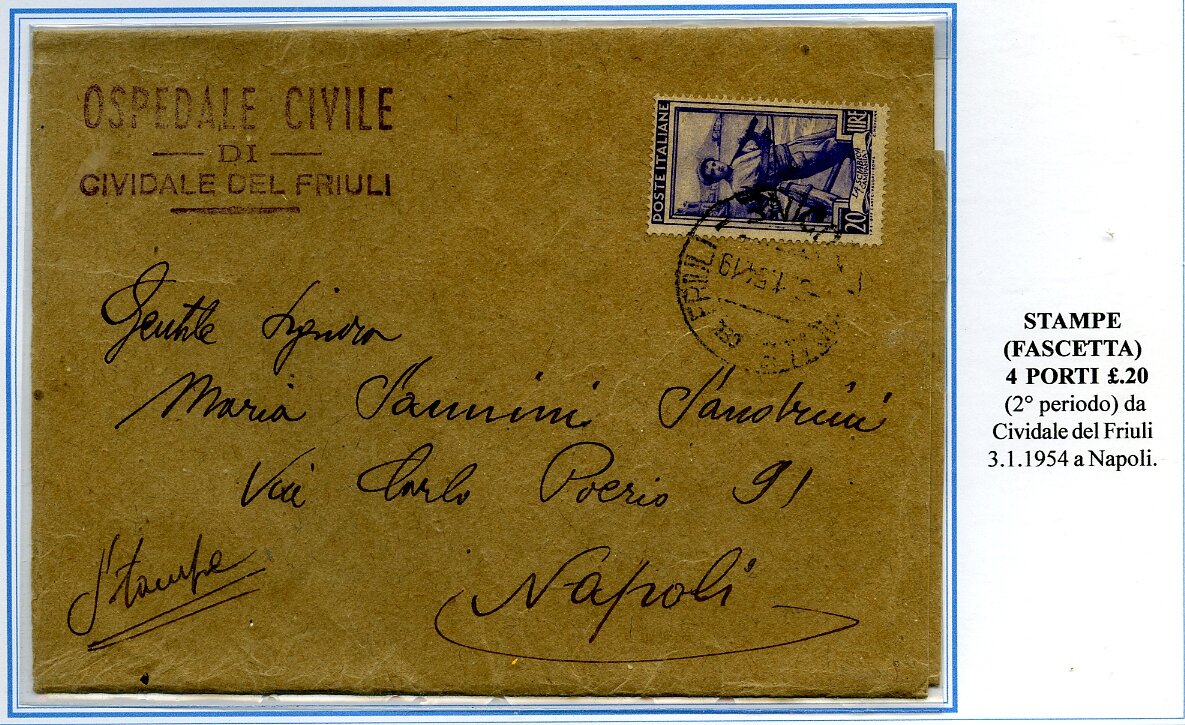 OSPEDALE CIVILE
— DI —
CIVIDALE DEL FRIULI
POSTE ITALIANE
LIRE
20
LA SCIABICA
CAMPANIA
FRIULI
1.54.19
Gentile Signora
Maria Sannini Sanobrini
Via Carlo Poerio 91
Napoli
Stampe
STAMPE
(FASCETTA)
4 PORTI £.20
(2° periodo) da
Cividale del Friuli
3.1.1954 a Napoli.